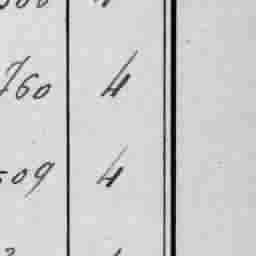 760 4
509 4